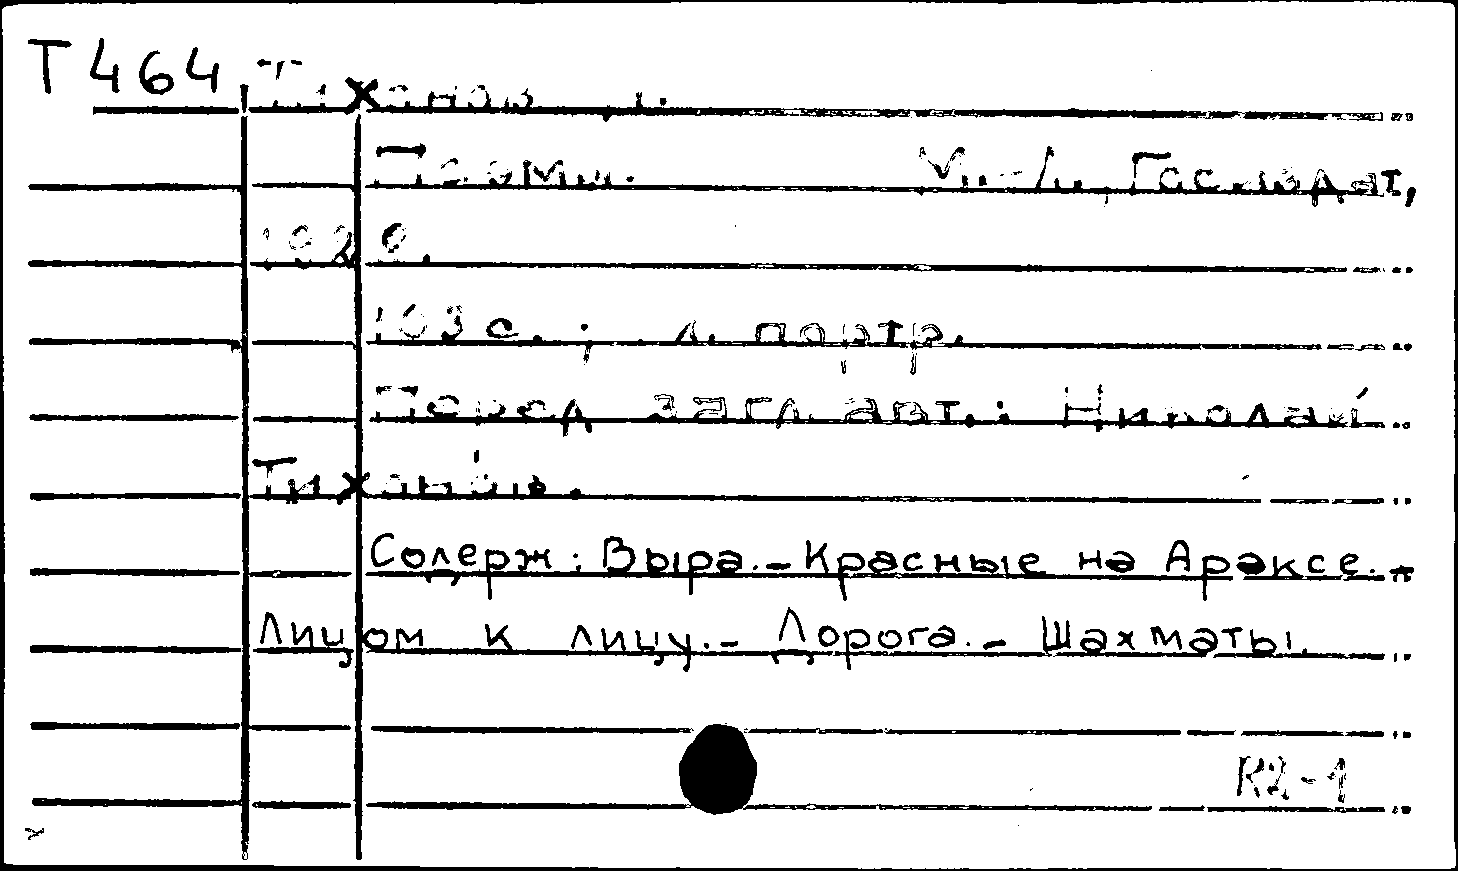 Т464 Тихонов
Поэмы. М.-Л., Госиздат,
1928.
103 с.; л. портр.
Перед загл. авт.: Николай
Тихонов.
Содерж: Выра.-Красные на Араксе.-
Лицом к лицу.- Дорога.- Шахматы.
R2-1